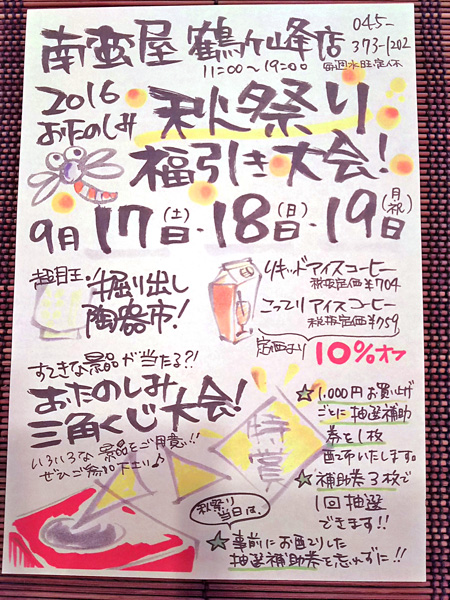 南蛮屋 鶴ヶ峰店
045-
373-1202
11:00〜19:00
毎週水曜定休
2016
おたのしみ
秋祭り
福引き大会!
9月17(土)日・18(日)日・19(月祝)日
超目玉・掘り出し
陶器市!
リキッドアイスコーヒー
税抜定価¥704
こってりアイスコーヒー
税抜定価¥759
定価より
10%オフ
すてきな景品が当たる?!
おたのしみ
三角くじ大会!
いろいろな景品をご用意!!
ぜひご参加下さい♪
特賞
☆1,000円お買い上げ
ごとに抽選補助
券を1枚
配布いたします。
☆補助券3枚で
1回抽選
できます!!
秋祭り
当日は、
☆事前にお配りした
抽選補助券を忘れずに!!